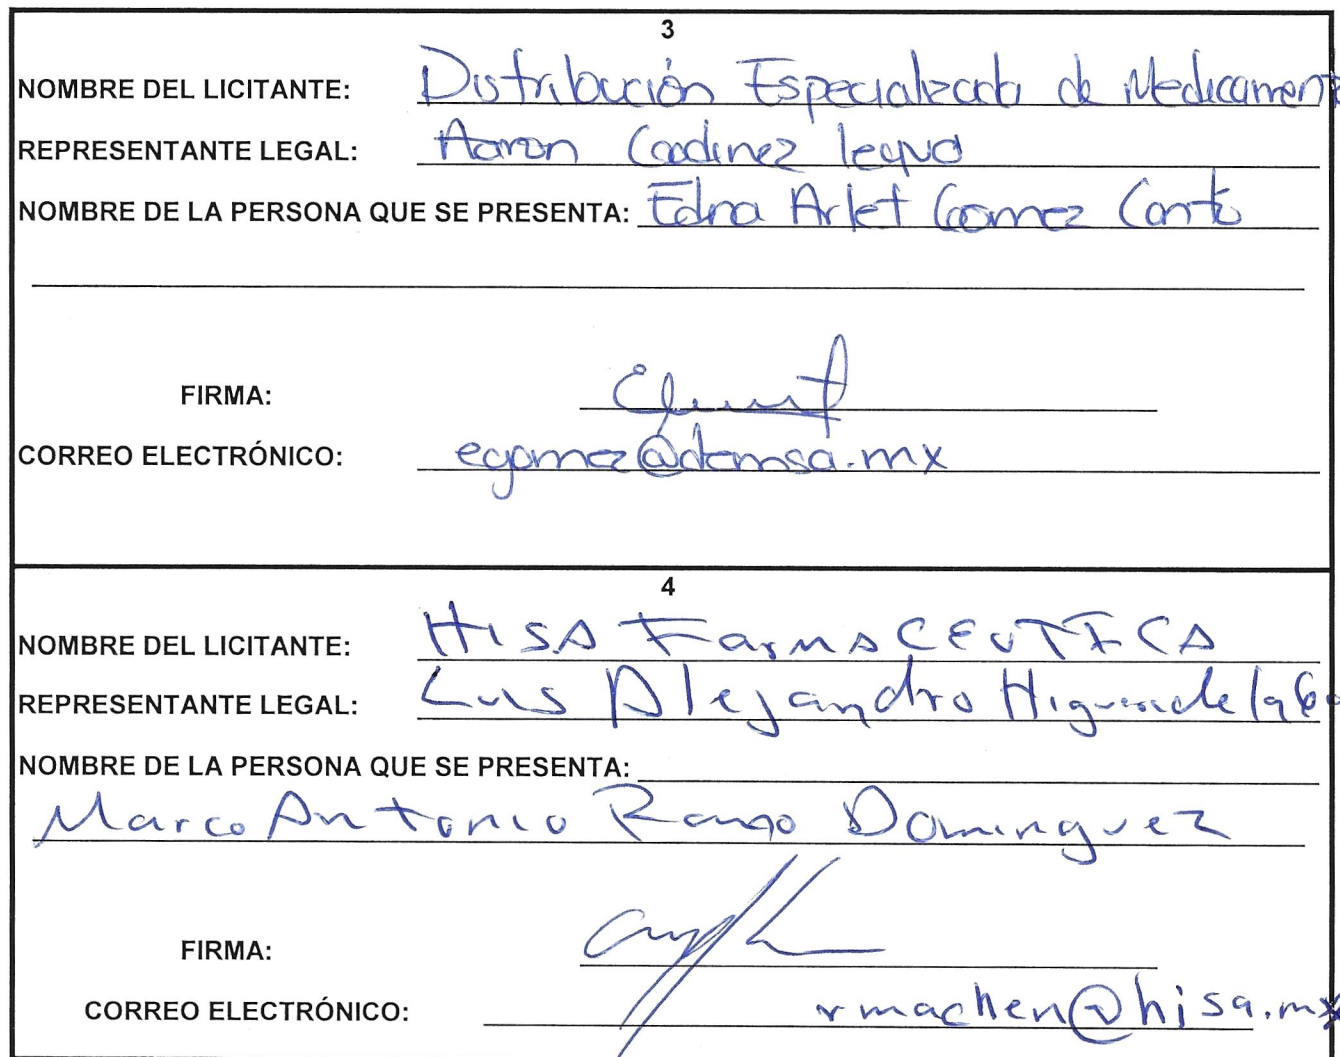 3
NOMBRE DEL LICITANTE: Distribución Especializada de Medicament
REPRESENTANTE LEGAL: Aaron
NOMBRE DE LA PERSONA QUE SE PRESENTA: Edna Arlet Gomez Canto
FIRMA:
CORREO ELECTRÓNICO: egomez@demsa.mx
4
NOMBRE DEL LICITANTE: HISA FarmACEUTICA
REPRESENTANTE LEGAL: Luis Alejandro Higuera de la
NOMBRE DE LA PERSONA QUE SE PRESENTA:
Marco Antonio Dominguez
FIRMA:
CORREO ELECTRÓNICO: rmachen@hisa.mx